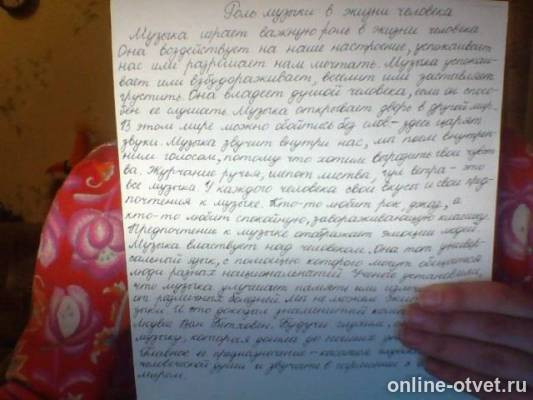 Роль музыки в жизни человека
Музыка играет важную роль в жизни человека
Она воздействует на наше настроение, успокаивает
нас или разрешает нам мечтать. Музыка успокаи-
вает или взбудораживает, веселит или заставляет
грустить. Она владеет душой человека, если он спосо-
бен ее слушать. Музыка открывает дверь в другой мир.
В этом мире можно обойтись без слов - здесь царят
звуки. Музыка звучит внутри нас, мы поем внутрен-
ним голосом, потому что хотим выразить свои чувст-
ва. Журчание ручья, шепот листва, гул ветра - это
все музыка. У каждого человека свой вкус и свои пред-
почтения к музыке. Кто-то любит рок, джаз, а
кто-то любит спокойную, завораживающую классику.
Предпочтение к музыке отображает эмоции людей
Музыка властвует над человеком. Она тот универ-
сальный язык, с помощью которого могут общаться
люди разных национальностей Ученые установили,
что музыка улучшает память или
от различных болезней Мы не можем
зыки И это доказал знаменитый
Людвиг Ван Бетховен. Будучи глухим,
музыку, которая дошла до
Главное ее предназначение - касаться
человеческой души и звучать в гармонии с
миром.
online-otvet.ru